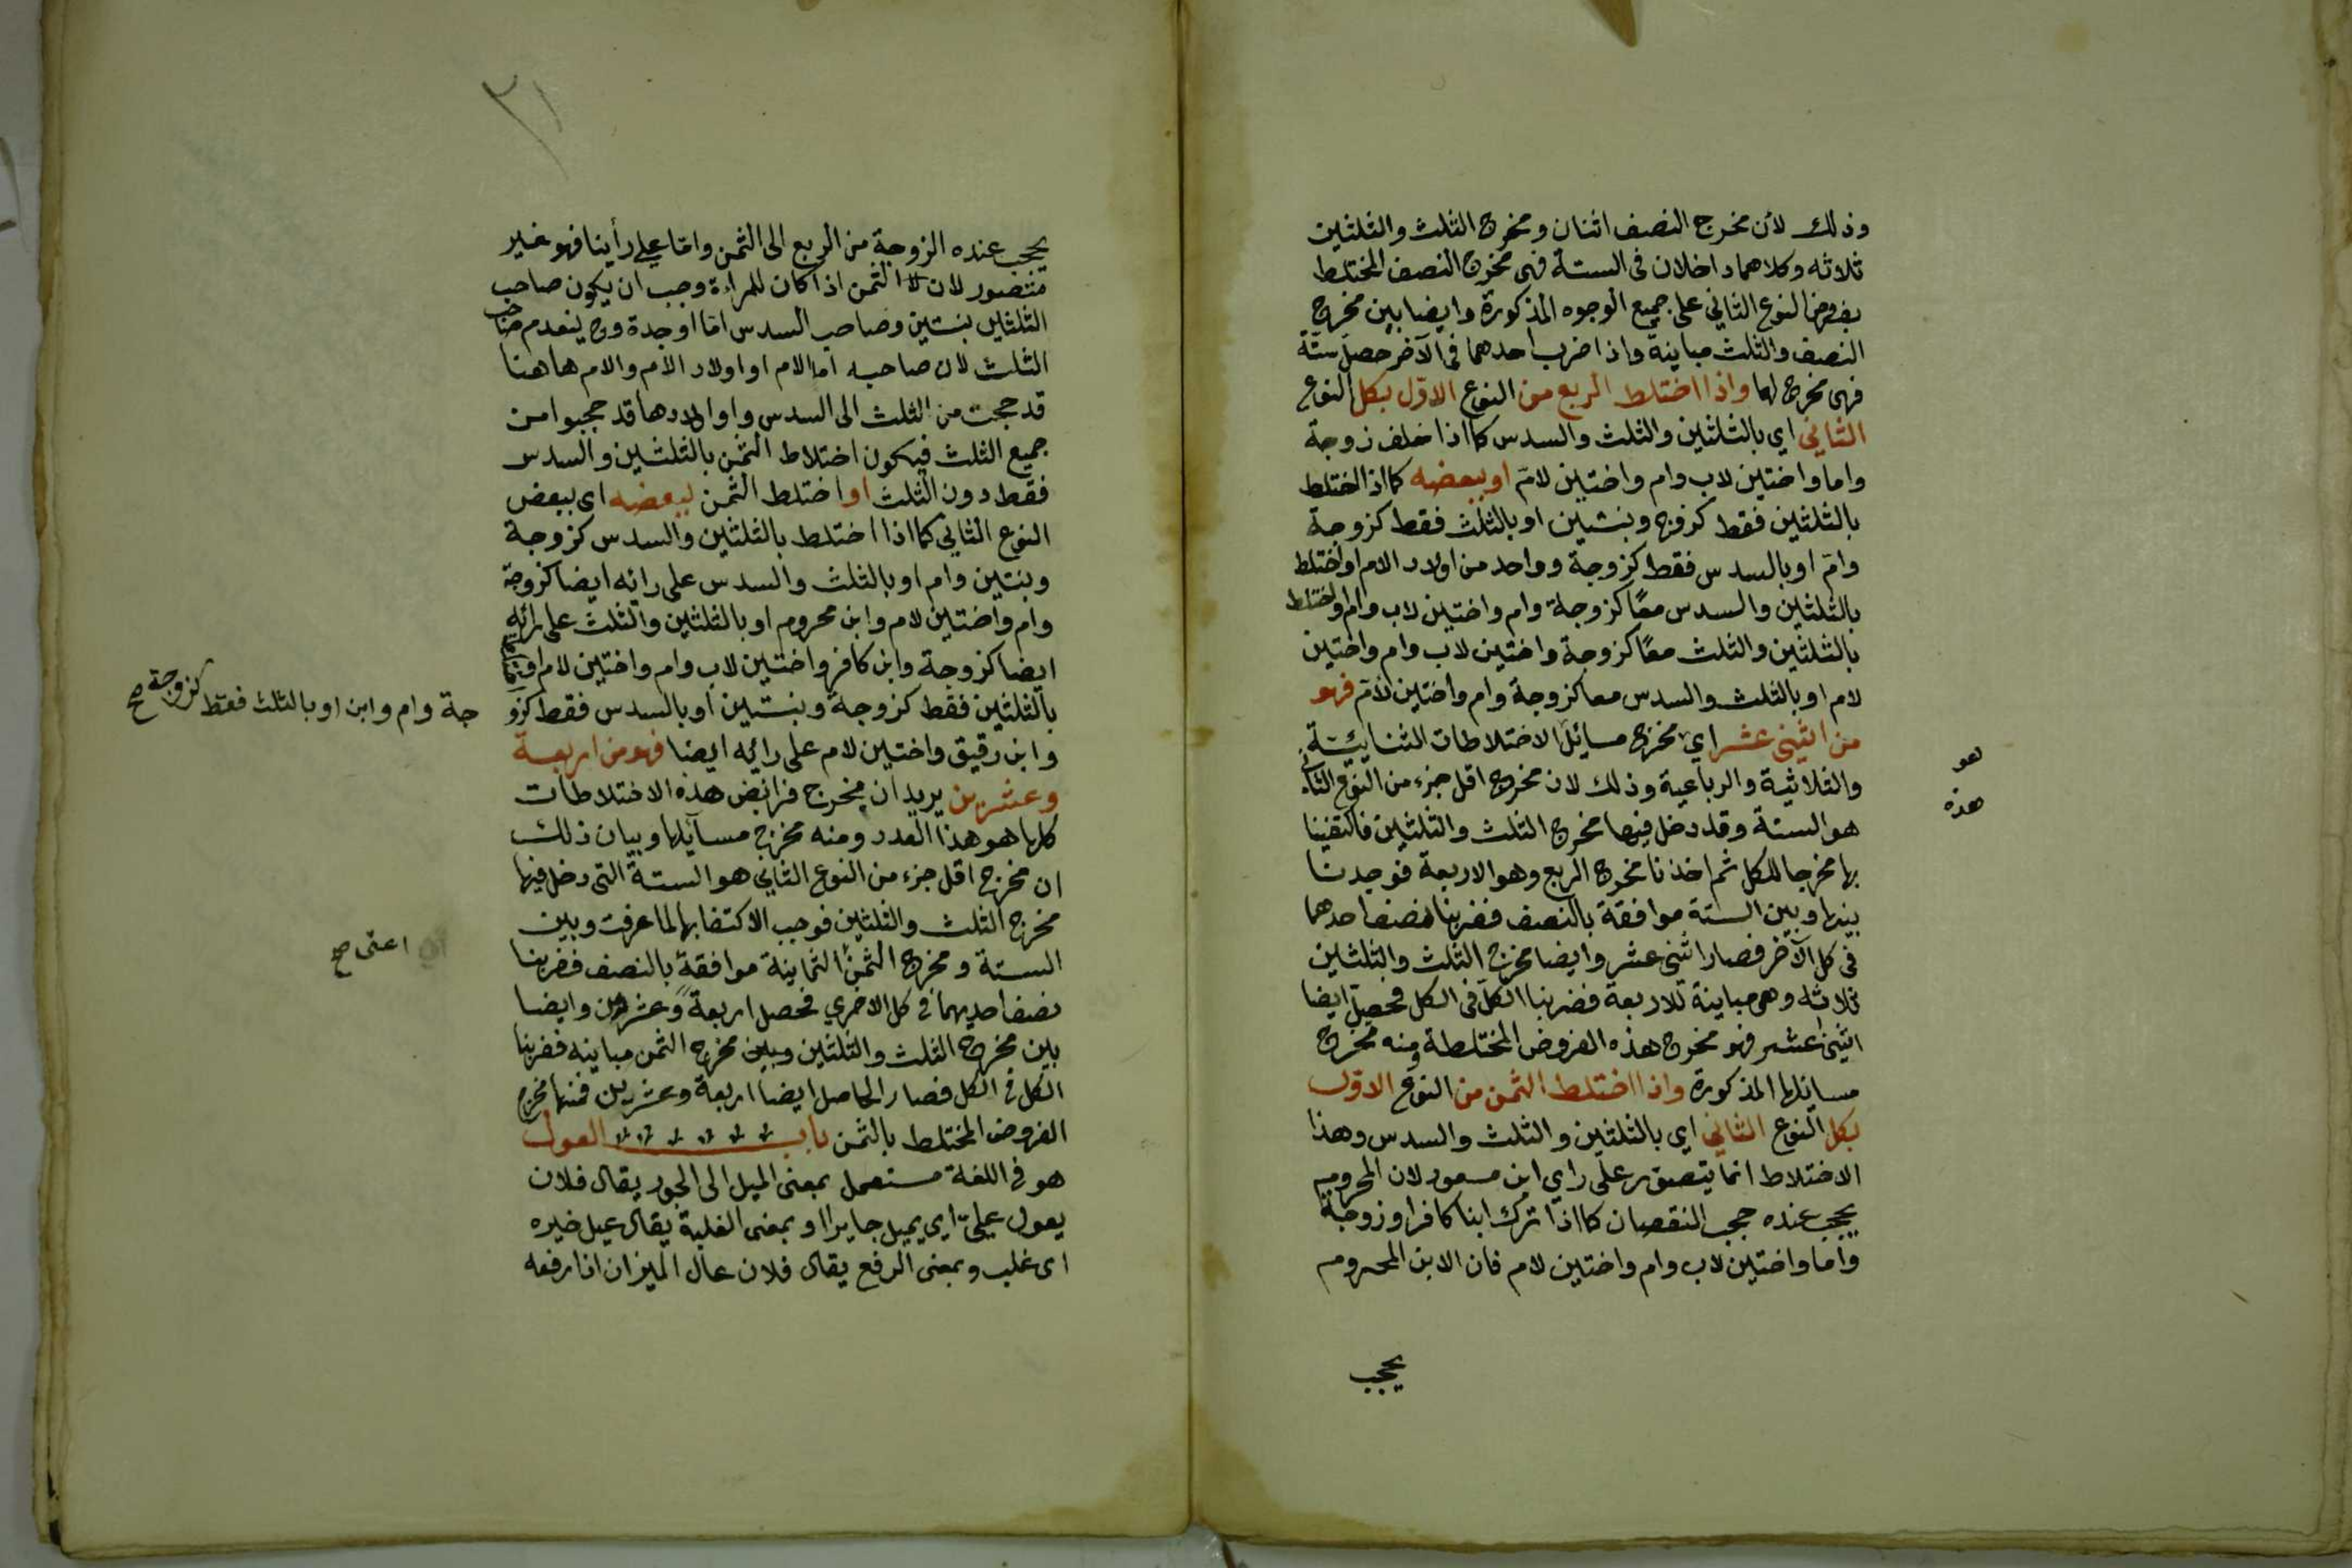 وذلك لأن مخرج النصف اثنان ومخرج الثلث والثلثين
ثلاثه وكلاهما داخلان فى الستة فهى مخرج النصف المختلط
بفروض النوع الثاني على جميع الوجوه المذكورة وايضا بين مخرج
النصف والثلث مباينة واذا ضرب احدهما فى الآخر حصل ستة
فهى مخرج لها واذا اختلط الربع من النوع الاوّل بكل النوع
الثاني اي بالثلثين والثلث والسدس كما اذا خلف زوجة
واما واختين لاب وام واختين لامّ او ببعضه كما اذا اختلط
بالثلثين فقط كزوج وبنتين او بالثلث فقط كزوجة
وامّ او بالسدس فقط كزوجة وواحد من اولاد الام او اختلط
بالثلثين والسدس معًا كزوجة وام واختين لاب وام او اختلط
بالثلثين والثلث معًا كزوجة واختين لاب وام واختين
لام او بالثلث والسدس معا كزوجة وام واختين لامّ فهو
من اثنى عشر اي مخرج مسائل الاختلاطات الثنايئية
والثلاثية والرباعية وذلك لان مخرج اقل جزء من النوع الثانى
هو الستة وقد دخل فيها مخرج الثلث والثلثين فاكتفينا
بها مخرجا للكل ثم اخذنا مخرج الربع وهو الاربعة فوجدنا
بينها وبين الستة موافقة بالنصف فضربنا نصف احدهما
فى كل الآخر فصار اثنى عشر وايضا مخرج الثلث والثلثين
ثلاثه وهى مباينة للاربعة فضربنا الكل فى الكل فحصل ايضا
اثنى عشر فهو مخرج هذه الفروض المختلطة ومنه مخرج
مسائلها المذكورة واذا اختلط الثمن من النوع الاوّل
بكل النوع الثاني اي بالثلثين والثلث والسدس وهذا
الاختلاط انما يتصور على راي ابن مسعود لان المحروم
يحجب عنده حجب النقصان كما اذا ترك ابنا كافرا وزوجة
واما واختين لاب وام واختين لام فان الابن المحروم
يحجب
هو
هذه
٣١
يحجب عنده الزوجة من الربع الى الثمن وامّا على رأينا فهو غير
متصور لان الثمن اذا كان للمراءة وجب ان يكون صاحب
الثلثين بنتين وصاحب السدس امّا او جدة وح ينعدم صاحب
الثلث لان صاحبه اما الام او اولاد الام والام هاهنا
قد حجبت من الثلث الى السدس واولادها قد حجبوا من
جميع الثلث فيكون اختلاط الثمن بالثلثين والسدس
فقط دون الثلث او اختلط الثمن ببعضه اى ببعض
النوع الثاني كما اذا اختلط بالثلثين والسدس كزوجة
وبنتين وام او بالثلث والسدس على رائه ايضا كزوجة
وام واختين لام وابن محروم او بالثلثين والثلث على رائه
ايضا كزوجة وابن كافر واختين لاب وام واختين لام او
بالثلثين فقط كزوجة وبنتين او بالسدس فقط كزو
جة وام وابن او بالثلث فقط كزوجة صح
وابن رقيق واختين لام على رائه ايضا فهو من اربعة
وعشرين يريد ان مخرج فرائض هذه الاختلاطات
كلها هو هذا العدد ومنه مخرج مسآيلها وبيان ذلك
ان مخرج اقل جزء من النوع الثاني هو الستة التى دخل فيها
مخرج الثلث والثلثين فوجب الاكتفا بها لما عرفت وبين
الستة ومخرج الثمن الثمانية موافقة بالنصف فضربنا
اعنى صح
نصف احديهما فى كل الاخري فحصل اربعة وعشرين وايضا
بين مخرج الثلث والثلثين وبين مخرج الثمن مباينه فضربنا
الكل فى الكل فصار الحاصل ايضا اربعة وعشرين فمنها مخرج
الفروض المختلط بالثمن باب العول
هو فى اللغة مستعمل بمعنى الميل الى الجور يقال فلان
يعول علىّ اى يميل جايرا او بمعنى الغلبة يقال عيل خيره
اى غلب وبمعنى الرفع يقال فلان عال الميزان اذا رفعه